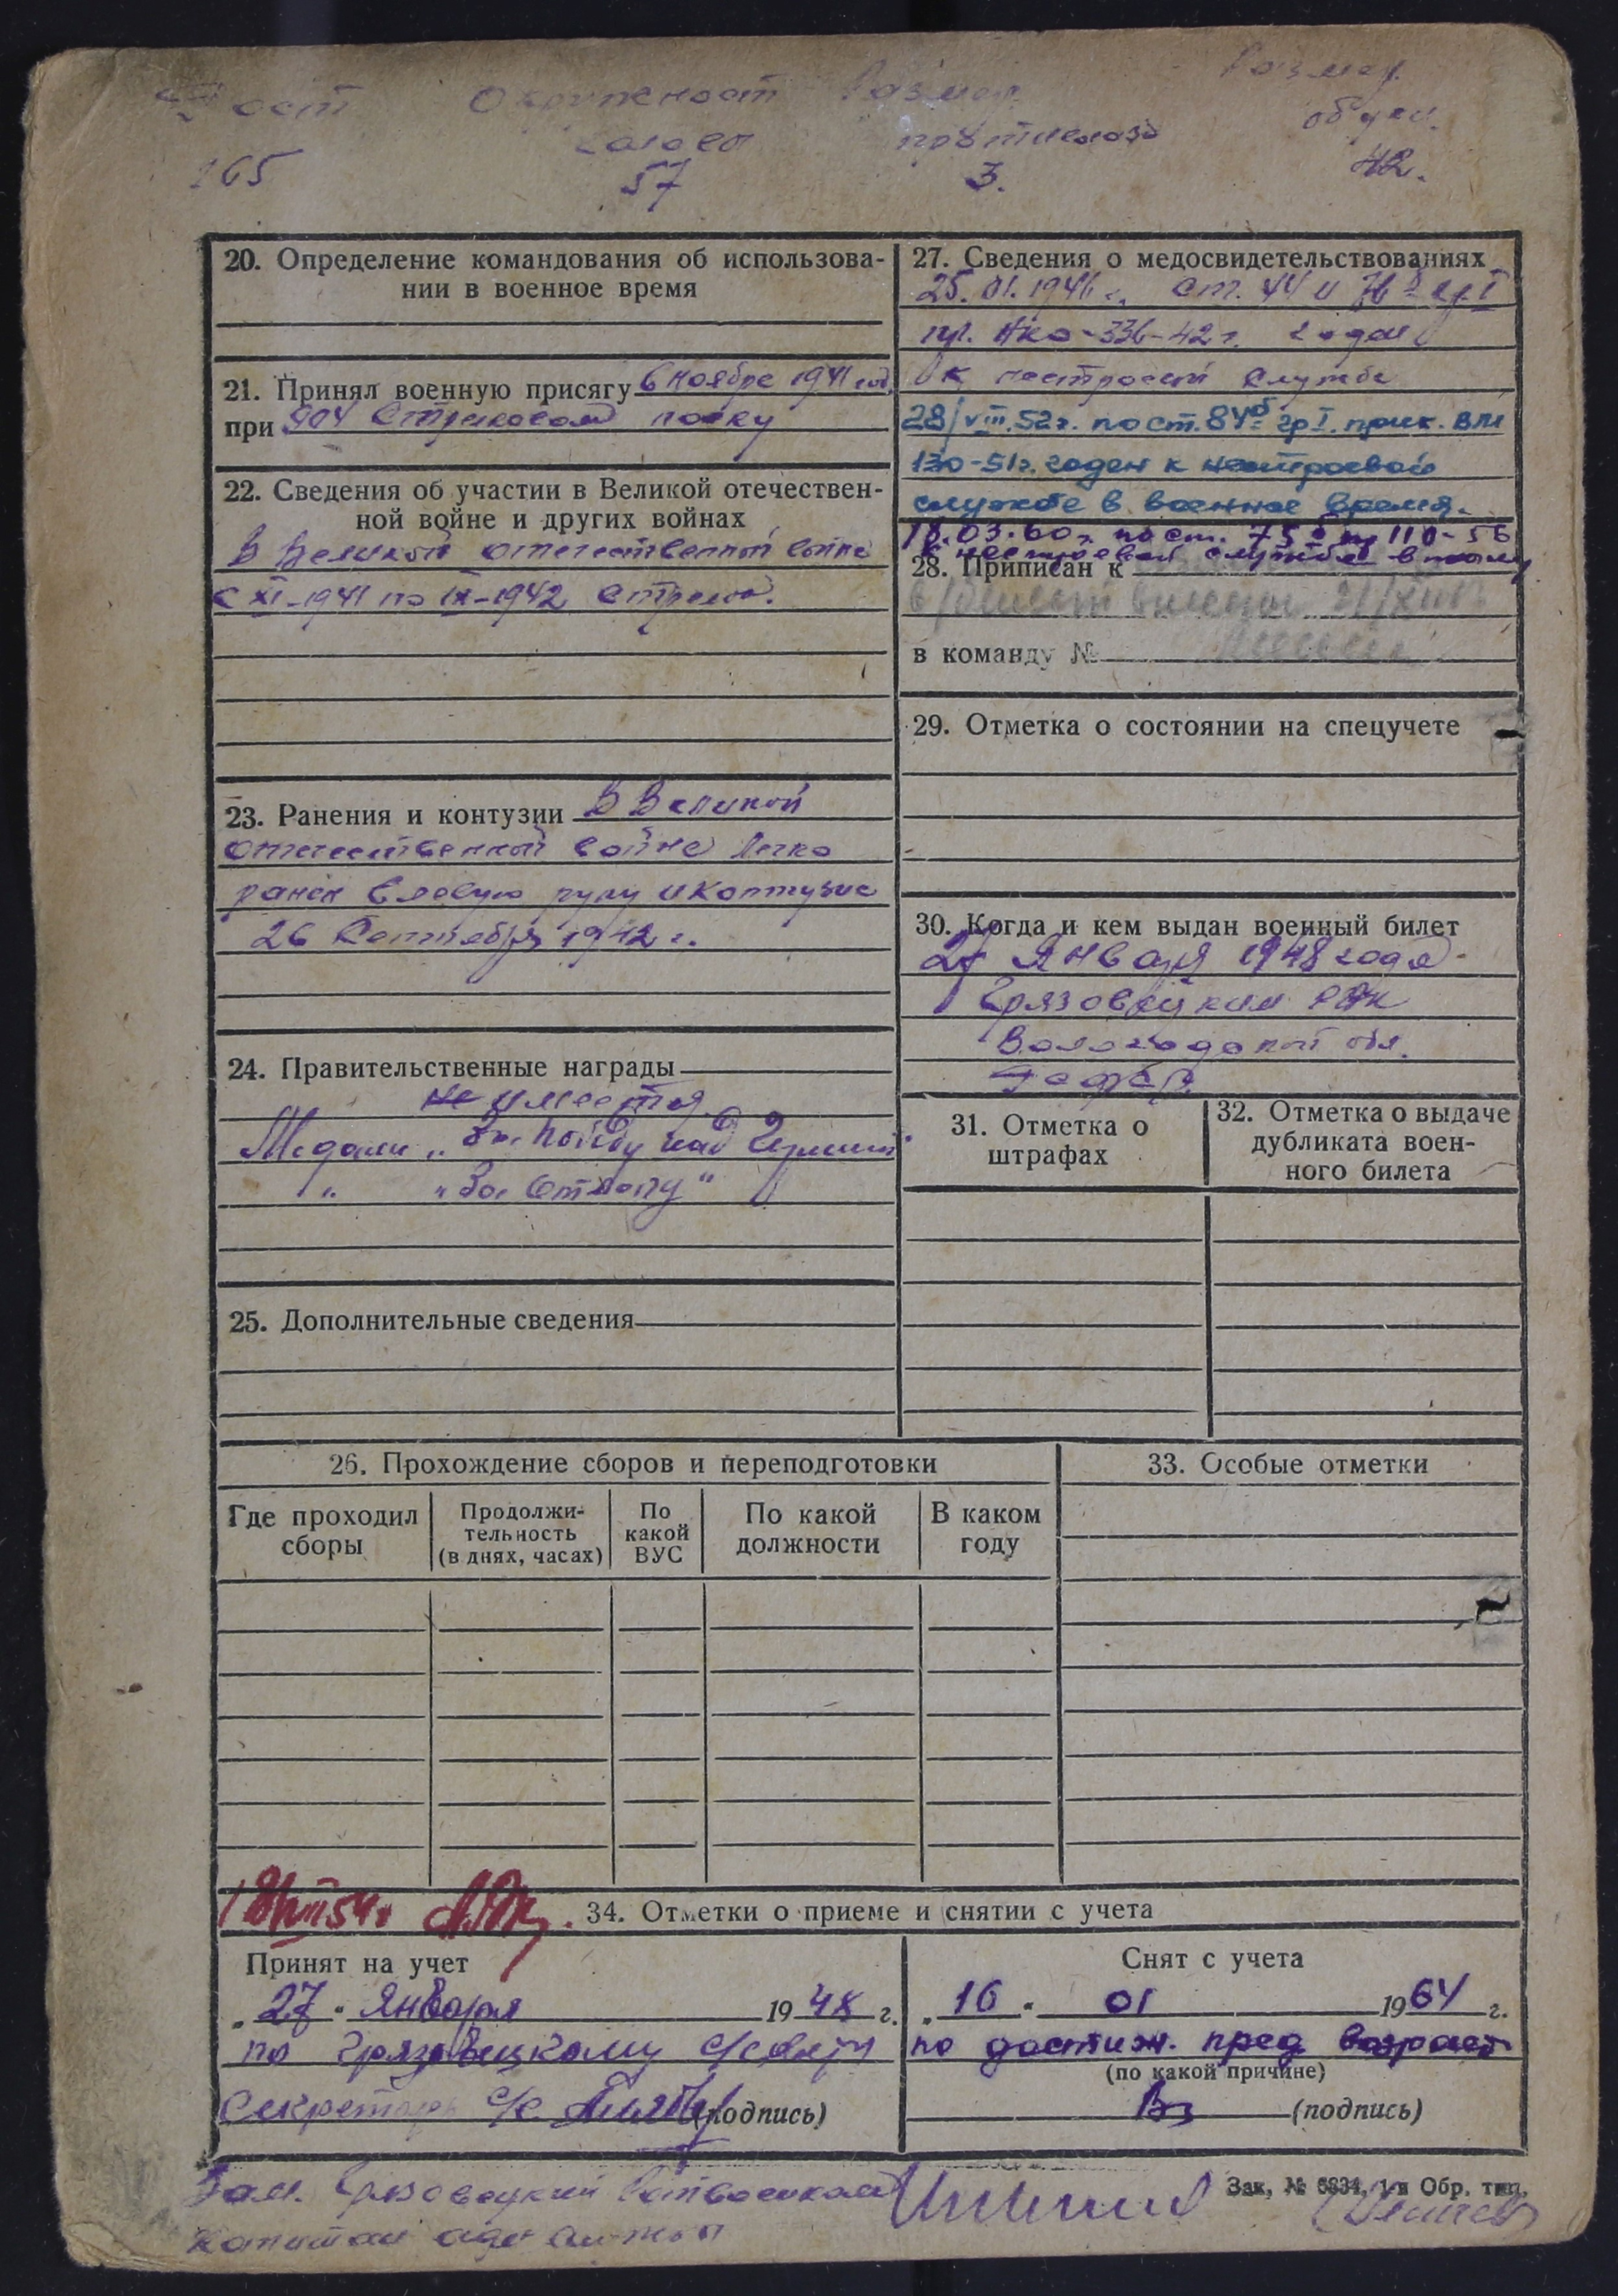 Рост Окружност Размер Размер
головы противогаза обуви.
165 57 3. 42.
20. Определение командования об использова-
нии в военное время
21. Принял военную присягу 6 ноября 1941 год.
при 904 Стрелковом полку
22. Сведения об участии в Великой отечествен-
ной войне и других войнах
В Великой отечественной войне
с XI-1941 по IX-1942 стрелок.
23. Ранения и контузии В Великой
отечественной войне легко
ранен в левую руку и контузия
26 Сентября 1942 г.
24. Правительственные награды
не имеется
Медали „За Победу над Германией
" „За Отвагу"
25. Дополнительные сведения
27. Сведения о медосвидетельствованиях
25.01.1946 г. ст. 44 и гр I
пр. НКО-336-42 г. годен
к нестроевой службе
28/VIII.52г. по ст. 84б гр I. прик. ВМ
130-51г. годен к нестроевой
службе в военное время.
18.03.60г. по ст. 75б пр 110-56
к нестроевой службе в тылу
28. Приписан к
в команду №
29. Отметка о состоянии на спецучете
30. Когда и кем выдан военный билет
27 Января 1948 года
Грязовецким РВК
Вологодской обл.
31. Отметка о
штрафах
32. Отметка о выдаче
дубликата воен-
ного билета
26. Прохождение сборов и переподготовки
Где проходил
сборы
Продолжи-
тельность
(в днях, часах)
По
какой
ВУС
По какой
должности
В каком
году
33. Особые отметки
34. Отметки о приеме и снятии с учета
Принят на учет
„27" Января 1948 г.
по Грязовецкому с/совету
Секретарь с/с (подпись)
Снят с учета
„16" 01 1964 г.
по достиж. пред возраст
(по какой причине)
(подпись)
Зак. № 6834, 1-я Обр. тип.
Зам. Грязовецкий Райвоенкомат
капитан адм службы